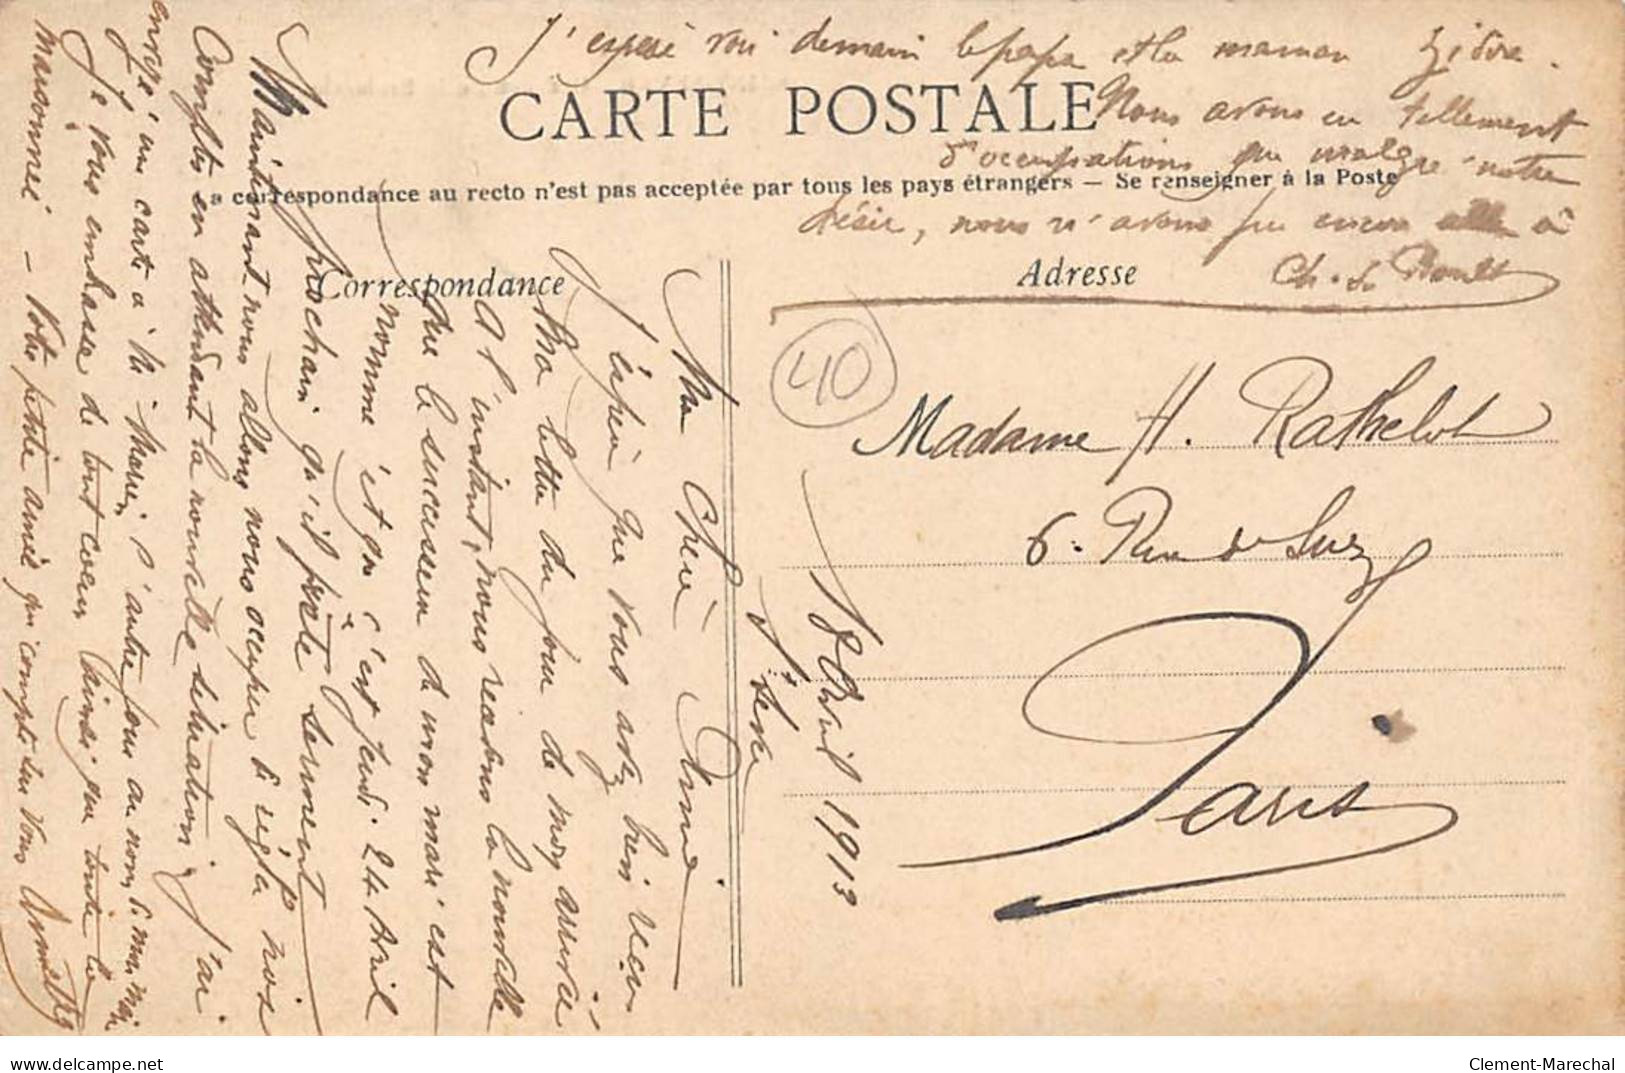 J'espère voir demain le papa et la maman
Nous avons eu tellement
d'occupations que malgré notre
désir, nous n'avons pu encore aller à
CARTE POSTALE
a correspondance au recto n'est pas acceptée par tous les pays étrangers — Se renseigner à la Poste
Correspondance
Adresse
40
Madame H. Rathelot
6. Rue de Suez
Paris
18 Avril 1913
Ma Chère Amie
J'espère que vous avez bien reçu
Ma lettre du jour de mon arrivée
A l'instant, nous recevons la nouvelle
que le successeur de mon mari est
nommé et que c'est jeudi 24 Avril
prochain qu'il prête serment
Maintenant nous allons nous occuper de régler nos
Comptes en attendant la nouvelle situation, j'ai
envoyé une carte à Me Marie, l'autre jour au nom de mon mari
Je vous embrasse de tout coeur ainsi que toute la
maisonnée - Votre petite amie qui compte sur vous
Clement-Marechal
delcampe.net